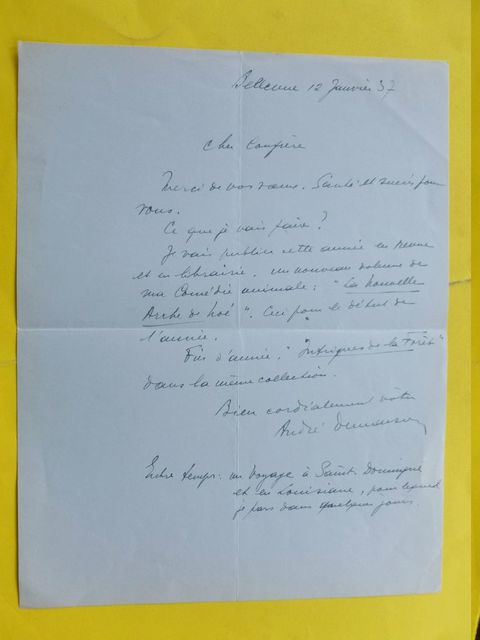 Bellevue 12 Janvier 37
Cher Confrère
Merci de vos vœux. Santé et succès pour
vous.
Ce que je vais faire ?
Je vais publier cette année en revue
et en librairie, un nouveau volume de
ma Comédie animale : "La Nouvelle
Arche de Noé". Ceci pour le début de
l'année.
Fin d'année, "Intrigues de la Forêt"
dans la même collection.
Bien cordialement vôtre
André Demaison
Entre temps : un voyage à Saint Domingue
et en Louisiane, pour lequel
je pars dans quelques jours.